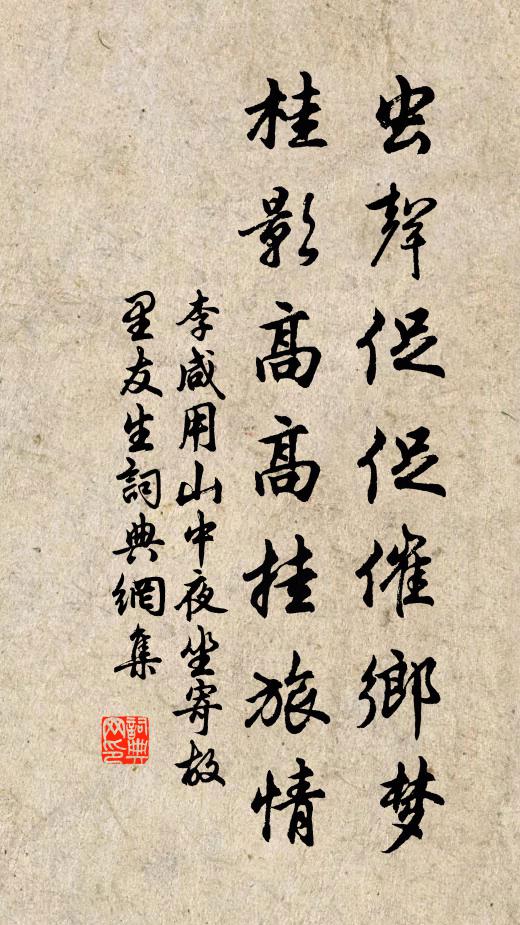 虫聲促促催鄉梦
桂影高高挂旅情
李咸用山中夜坐寄故
里友生詞典網集
詞典
网印